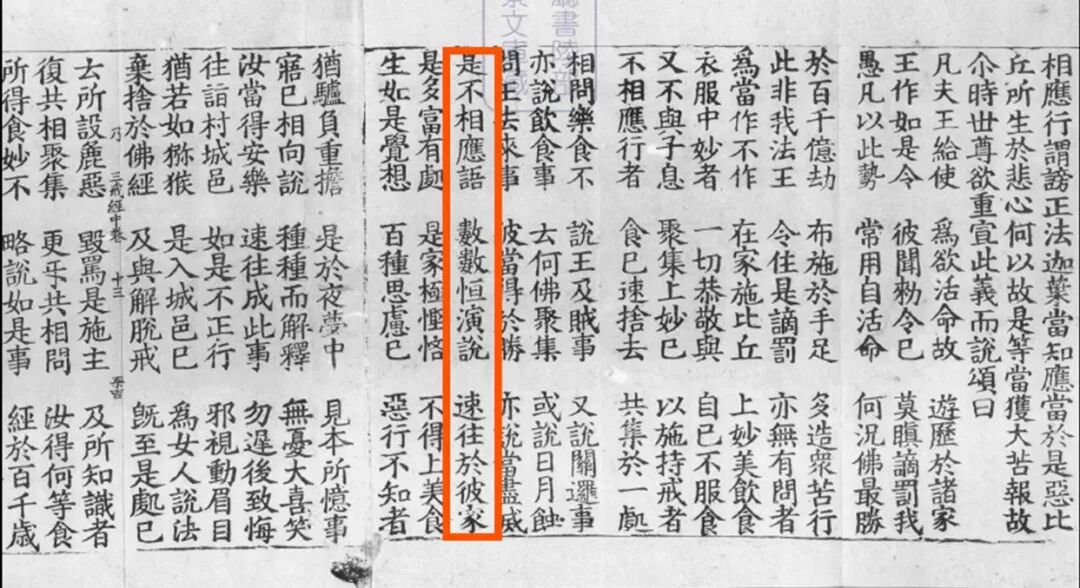 相應行謂謗正法迦葉當知應當於是惡比
丘所生於悲心何以故是等當獲大苦報故
尒時世尊欲重宣此義而說頌曰
凡夫王給使 為欲活命故 遊歷於諸家
王作如是令 彼聞勑令已 莫瞋謫罰我
愚凡以此勢 常用自活命 何況佛最勝
於百千億劫 布施於手足 多造衆苦行
此非我法王 令住是謫罰 亦無有問者
為當作不作 在家施比丘 上妙美飲食
衣服中妙者 一切恭敬與 自已不服食
又不與子息 聚集上妙已 以施持戒者
不相應行者 食已速捨去 共集於一處
相問樂食不 說王及賊事 又說關邏事
亦說飲食事 去何佛聚集 或說日月蝕
問王去來事 彼當得於勝 亦說當盡威
是不相應語 數數恒演說 速往於彼家
是多富有處 是家極慳悋 不得上美食
生如是覺想 百種思慮已 惡行不知者
猶驢負重擔 是於夜夢中 見本所憶事
寤已相向說 種種而解釋 無憂大喜笑
汝當得安樂 速往成此事 勿遲後致悔
往詣村城邑 如是不正行 邪視動眉目
猶若如獼猴 是入城邑已 為女人說法
棄捨於佛經 及與解脫戒 旣至是處已
乃 三戒經中卷 十三
去所設麁惡 毀罵是施主 及所知識者
復共相聚集 更㸦共相問 汝得何等食
所得食妙不 略說如是事 經於百千歲
書陵部
文庫藏